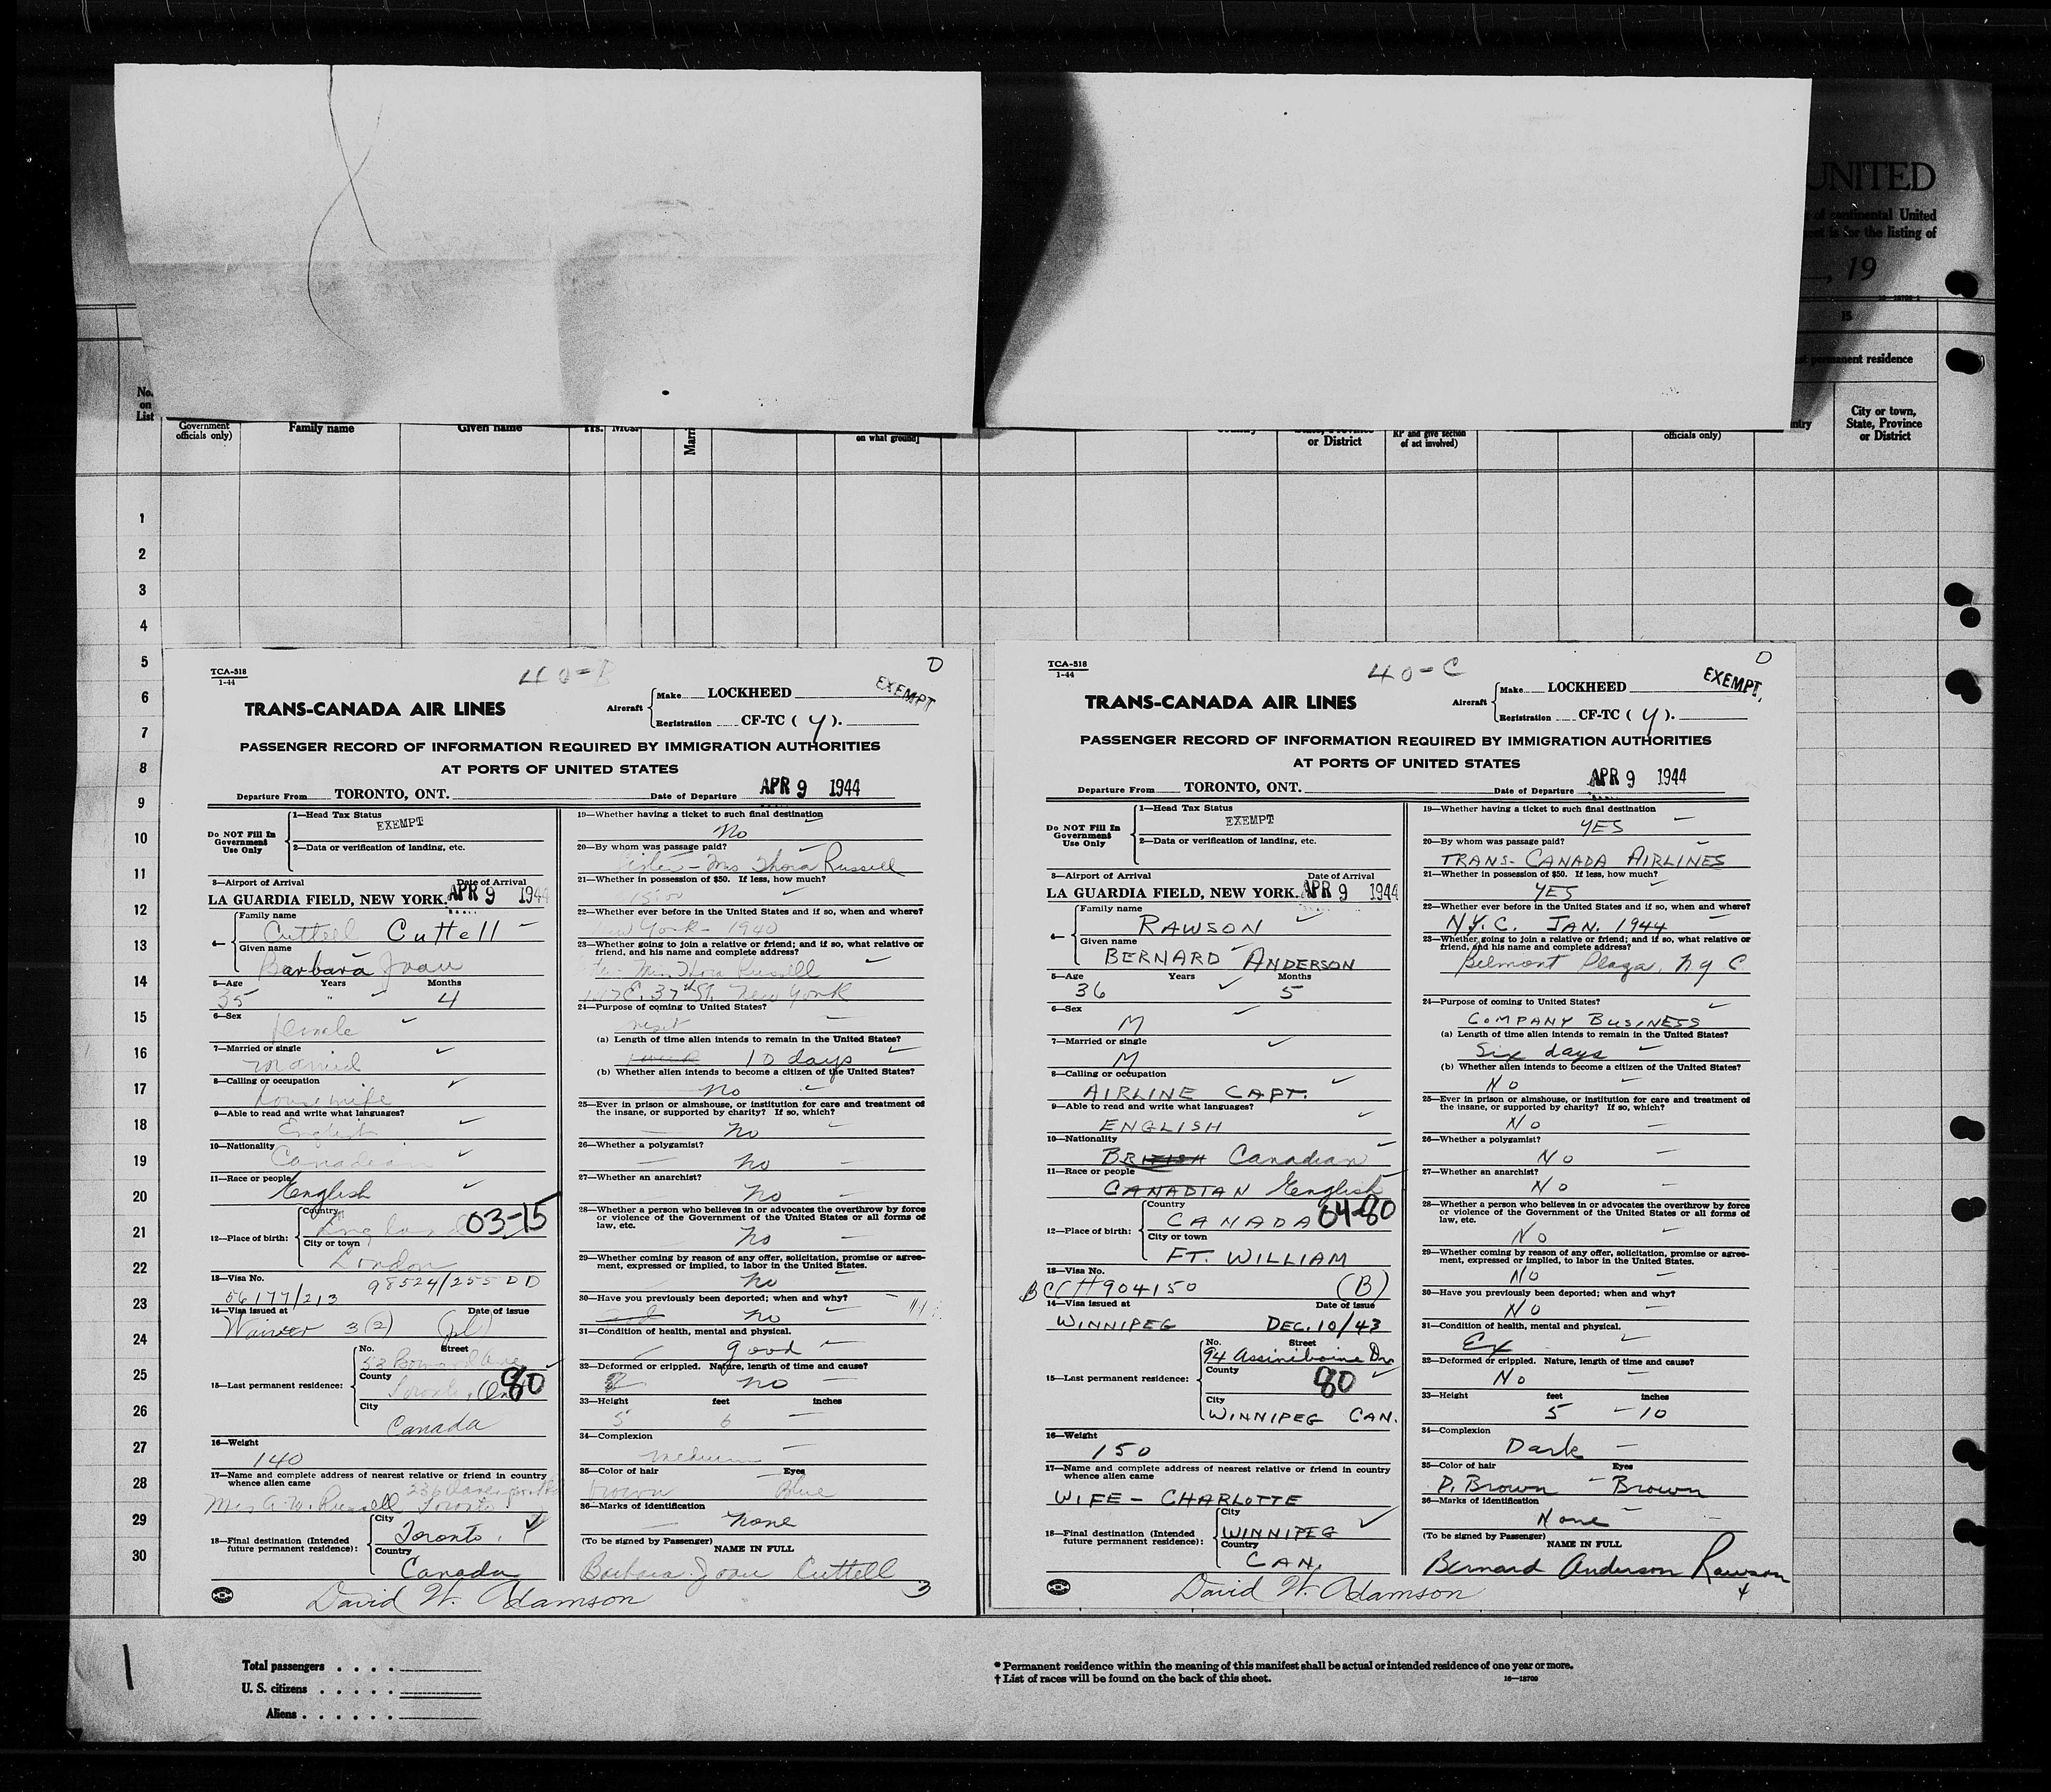 UNITED
of continental United
sheet is for the listing of
, 19
15
permanent residence
No.
on
List
Government
officials only)
Family name
Given name
Yrs.
Mos.
on what ground]
or District
RP and give section
of act involved)
officials only)
City or town,
State, Province
or District
1
2
3
4
5
6
7
8
9
10
11
12
13
14
15
16
17
18
19
20
21
22
23
24
25
26
27
28
29
30
TCA-518
1-44
40-B
D
EXEMPT
TRANS-CANADA AIR LINES
Aircraft
Make LOCKHEED
Registration CF-TC ( Y ).
PASSENGER RECORD OF INFORMATION REQUIRED BY IMMIGRATION AUTHORITIES
AT PORTS OF UNITED STATES
Departure From TORONTO, ONT. Date of Departure APR 9 1944
Do NOT Fill In
Government
Use Only
1—Head Tax Status
EXEMPT
2—Data or verification of landing, etc.
3—Airport of Arrival Date of Arrival
LA GUARDIA FIELD, NEW YORK. APR 9 1944
4— Family name
Cuttell Cuttell
Given name
Barbara Joan
5—Age Years Months
35 " 4
6—Sex
female
7—Married or single
married
8—Calling or occupation
housewife
9—Able to read and write what languages?
English
10—Nationality
Canadian
11—Race or people
English
12—Place of birth:
Country
England 03-15
City or town
London
13—Visa No. 98524/255 DD
56177/213
14—Visa issued at Date of issue
Waiver 3(2)
15—Last permanent residence:
No. Street
County
Toronto, Ont 80
City
Canada
16—Weight
140
17—Name and complete address of nearest relative or friend in country
whence alien came
Mrs G. W. Russell Toronto
18—Final destination (Intended
future permanent residence):
City
Toronto
Country
Canada
David W. Adamson
19—Whether having a ticket to such final destination
No
20—By whom was passage paid?
Sister - Mrs Thora Russell
21—Whether in possession of $50. If less, how much?
22—Whether ever before in the United States and if so, when and where?
New York - 1940
23—Whether going to join a relative or friend; and if so, what relative or
friend, and his name and complete address?
Mrs Thora Russell
E. 37th St. New York
24—Purpose of coming to United States?
visit
(a) Length of time alien intends to remain in the United States?
10 days
(b) Whether alien intends to become a citizen of the United States?
No
25—Ever in prison or almshouse, or institution for care and treatment of
the insane, or supported by charity? If so, which?
No
26—Whether a polygamist?
No
27—Whether an anarchist?
No
28—Whether a person who believes in or advocates the overthrow by force
or violence of the Government of the United States or all forms of
law, etc.
No
29—Whether coming by reason of any offer, solicitation, promise or agree-
ment, expressed or implied, to labor in the United States.
No
30—Have you previously been deported; when and why?
No
31—Condition of health, mental and physical.
good
32—Deformed or crippled. Nature, length of time and cause?
no
33—Height feet inches
5 6
34—Complexion
medium
35—Color of hair Eyes
brown Blue
36—Marks of identification
none
(To be signed by Passenger)
NAME IN FULL
Barbara Joan Cuttell
3
TCA-518
1-44
40-C
D
EXEMPT
TRANS-CANADA AIR LINES
Aircraft
Make LOCKHEED
Registration CF-TC ( Y ).
PASSENGER RECORD OF INFORMATION REQUIRED BY IMMIGRATION AUTHORITIES
AT PORTS OF UNITED STATES
Departure From TORONTO, ONT. Date of Departure APR 9 1944
Do NOT Fill In
Government
Use Only
1—Head Tax Status
EXEMPT
2—Data or verification of landing, etc.
3—Airport of Arrival Date of Arrival
LA GUARDIA FIELD, NEW YORK. APR 9 1944
4— Family name
RAWSON
Given name
BERNARD ANDERSON
5—Age Years Months
36 5
6—Sex
M
7—Married or single
M
8—Calling or occupation
AIRLINE CAPT.
9—Able to read and write what languages?
ENGLISH
10—Nationality
BRITISH Canadian
11—Race or people
CANADIAN English
12—Place of birth:
Country
CANADA 04-80
City or town
FT. WILLIAM
13—Visa No.
BCC #904150 (B)
14—Visa issued at Date of issue
WINNIPEG DEC. 10/43
15—Last permanent residence:
No. Street
94 Assiniboine Dr
County
80
City
WINNIPEG CAN.
16—Weight
150
17—Name and complete address of nearest relative or friend in country
whence alien came
WIFE - CHARLOTTE
18—Final destination (Intended
future permanent residence):
City
WINNIPEG
Country
CAN.
David W. Adamson
19—Whether having a ticket to such final destination
YES
20—By whom was passage paid?
TRANS-CANADA AIRLINES
21—Whether in possession of $50. If less, how much?
YES
22—Whether ever before in the United States and if so, when and where?
N.Y.C. JAN. 1944
23—Whether going to join a relative or friend; and if so, what relative or
friend, and his name and complete address?
Belmont Plaza, NYC
24—Purpose of coming to United States?
COMPANY BUSINESS
(a) Length of time alien intends to remain in the United States?
Six days
(b) Whether alien intends to become a citizen of the United States?
NO
25—Ever in prison or almshouse, or institution for care and treatment of
the insane, or supported by charity? If so, which?
NO
26—Whether a polygamist?
NO
27—Whether an anarchist?
NO
28—Whether a person who believes in or advocates the overthrow by force
or violence of the Government of the United States or all forms of
law, etc.
NO
29—Whether coming by reason of any offer, solicitation, promise or agree-
ment, expressed or implied, to labor in the United States.
NO
30—Have you previously been deported; when and why?
NO
31—Condition of health, mental and physical.
Ex
32—Deformed or crippled. Nature, length of time and cause?
NO
33—Height feet inches
5 - 10
34—Complexion
Dark
35—Color of hair Eyes
D. Brown - Brown
36—Marks of identification
None
(To be signed by Passenger)
NAME IN FULL
Bernard Anderson Rawson
4
Total passengers . . . .
U. S. citizens . . . . .
Aliens . . . . . .
* Permanent residence within the meaning of this manifest shall be actual or intended residence of one year or more.
† List of races will be found on the back of this sheet.
16—18700